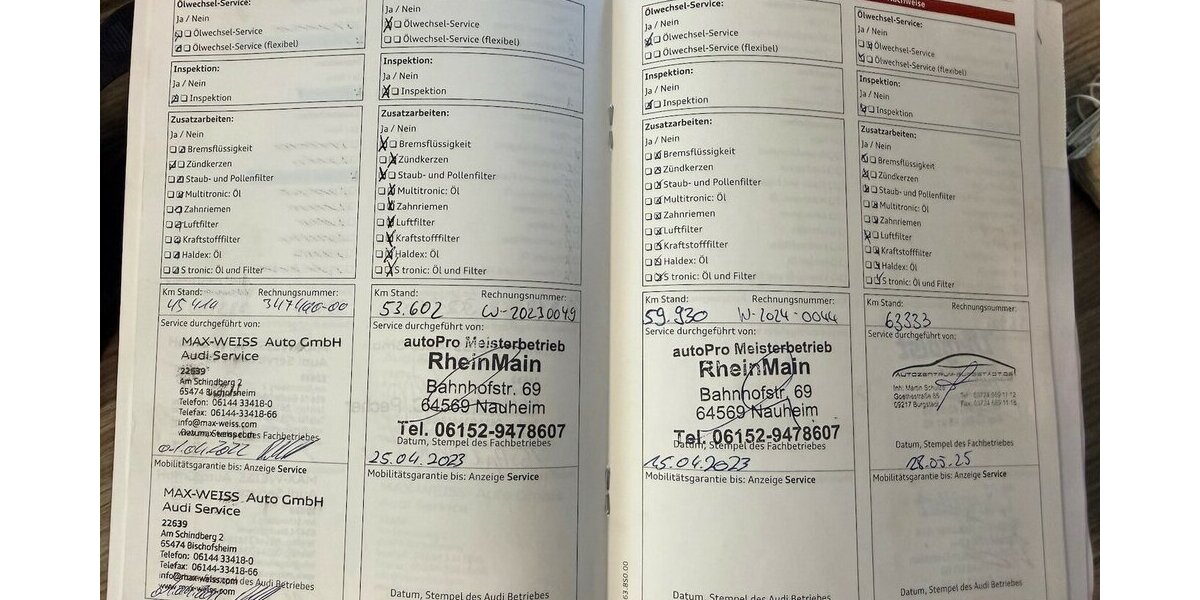 Ölwechsel-Service:
Ja / Nein
Ölwechsel-Service
Ölwechsel-Service (flexibel)
Inspektion:
Ja / Nein
Inspektion
Zusatzarbeiten:
Ja / Nein
Bremsflüssigkeit
Zündkerzen
Staub- und Pollenfilter
Multitronic: Öl
Zahnriemen
Luftfilter
Kraftstofffilter
Haldex: Öl
S tronic: Öl und Filter
Km Stand:
Rechnungsnummer:
45 414
Service durchgeführt von:
MAX-WEISS Auto GmbH
Audi Service
22639
Am Schindberg 2
65474 Bischofsheim
Telefon: 06144 33418-0
Telefax: 06144 33418-66
info@max-weiss.com
des Fachbetriebes
Mobilitätsgarantie bis: Anzeige Service
MAX-WEISS Auto GmbH
Audi Service
22639
Am Schindberg 2
65474 Bischofsheim
Telefon: 06144 33418-0
Telefax: 06144-33418-66
info@max-weiss.com
des Audi Betriebes
www.max-weiss.com
Ja / Nein
Ölwechsel-Service
Ölwechsel-Service (flexibel)
Inspektion:
Ja / Nein
Inspektion
Zusatzarbeiten:
Ja / Nein
Bremsflüssigkeit
Zündkerzen
Staub- und Pollenfilter
Multitronic: Öl
Zahnriemen
Luftfilter
Kraftstofffilter
Haldex: Öl
S tronic: Öl und Filter
Km Stand:
Rechnungsnummer:
53.602
W-20230049
Service durchgeführt von:
autoPro Meisterbetrieb
RheinMain
Bahnhofstr. 69
64569 Nauheim
Tel. 06152-9478607
Datum, Stempel des Fachbetriebes
25.04.2023
Mobilitätsgarantie bis: Anzeige Service
Datum, Stempel des Audi Betriebes
Ölwechsel-Service:
Ja / Nein
Ölwechsel-Service
Ölwechsel-Service (flexibel)
Inspektion:
Ja / Nein
Inspektion
Zusatzarbeiten:
Ja / Nein
Bremsflüssigkeit
Zündkerzen
Staub- und Pollenfilter
Multitronic: Öl
Zahnriemen
Luftfilter
Kraftstofffilter
Haldex: Öl
S tronic: Öl und Filter
Km Stand:
Rechnungsnummer:
59.930
W-2024-0044
Service durchgeführt von:
autoPro Meisterbetrieb
RheinMain
Bahnhofstr. 69
64569 Nauheim
Tel. 06152-9478607
Datum, Stempel des Fachbetriebes
15.04.2023
Mobilitätsgarantie bis: Anzeige Service
Datum, Stempel des Audi Betriebes
Ölwechsel-Service:
Ja / Nein
Ölwechsel-Service
Ölwechsel-Service (flexibel)
Inspektion:
Ja / Nein
Inspektion
Zusatzarbeiten:
Ja / Nein
Bremsflüssigkeit
Zündkerzen
Staub- und Pollenfilter
Multitronic: Öl
Zahnriemen
Luftfilter
Kraftstofffilter
Haldex: Öl
S tronic: Öl und Filter
Km Stand:
Rechnungsnummer:
63333
Service durchgeführt von:
Inh. Martin
09217 Burgstädt
Datum, Stempel des Fachbetriebes
28.05.25
Mobilitätsgarantie bis: Anzeige Service
Datum, Stempel des Audi Betriebes